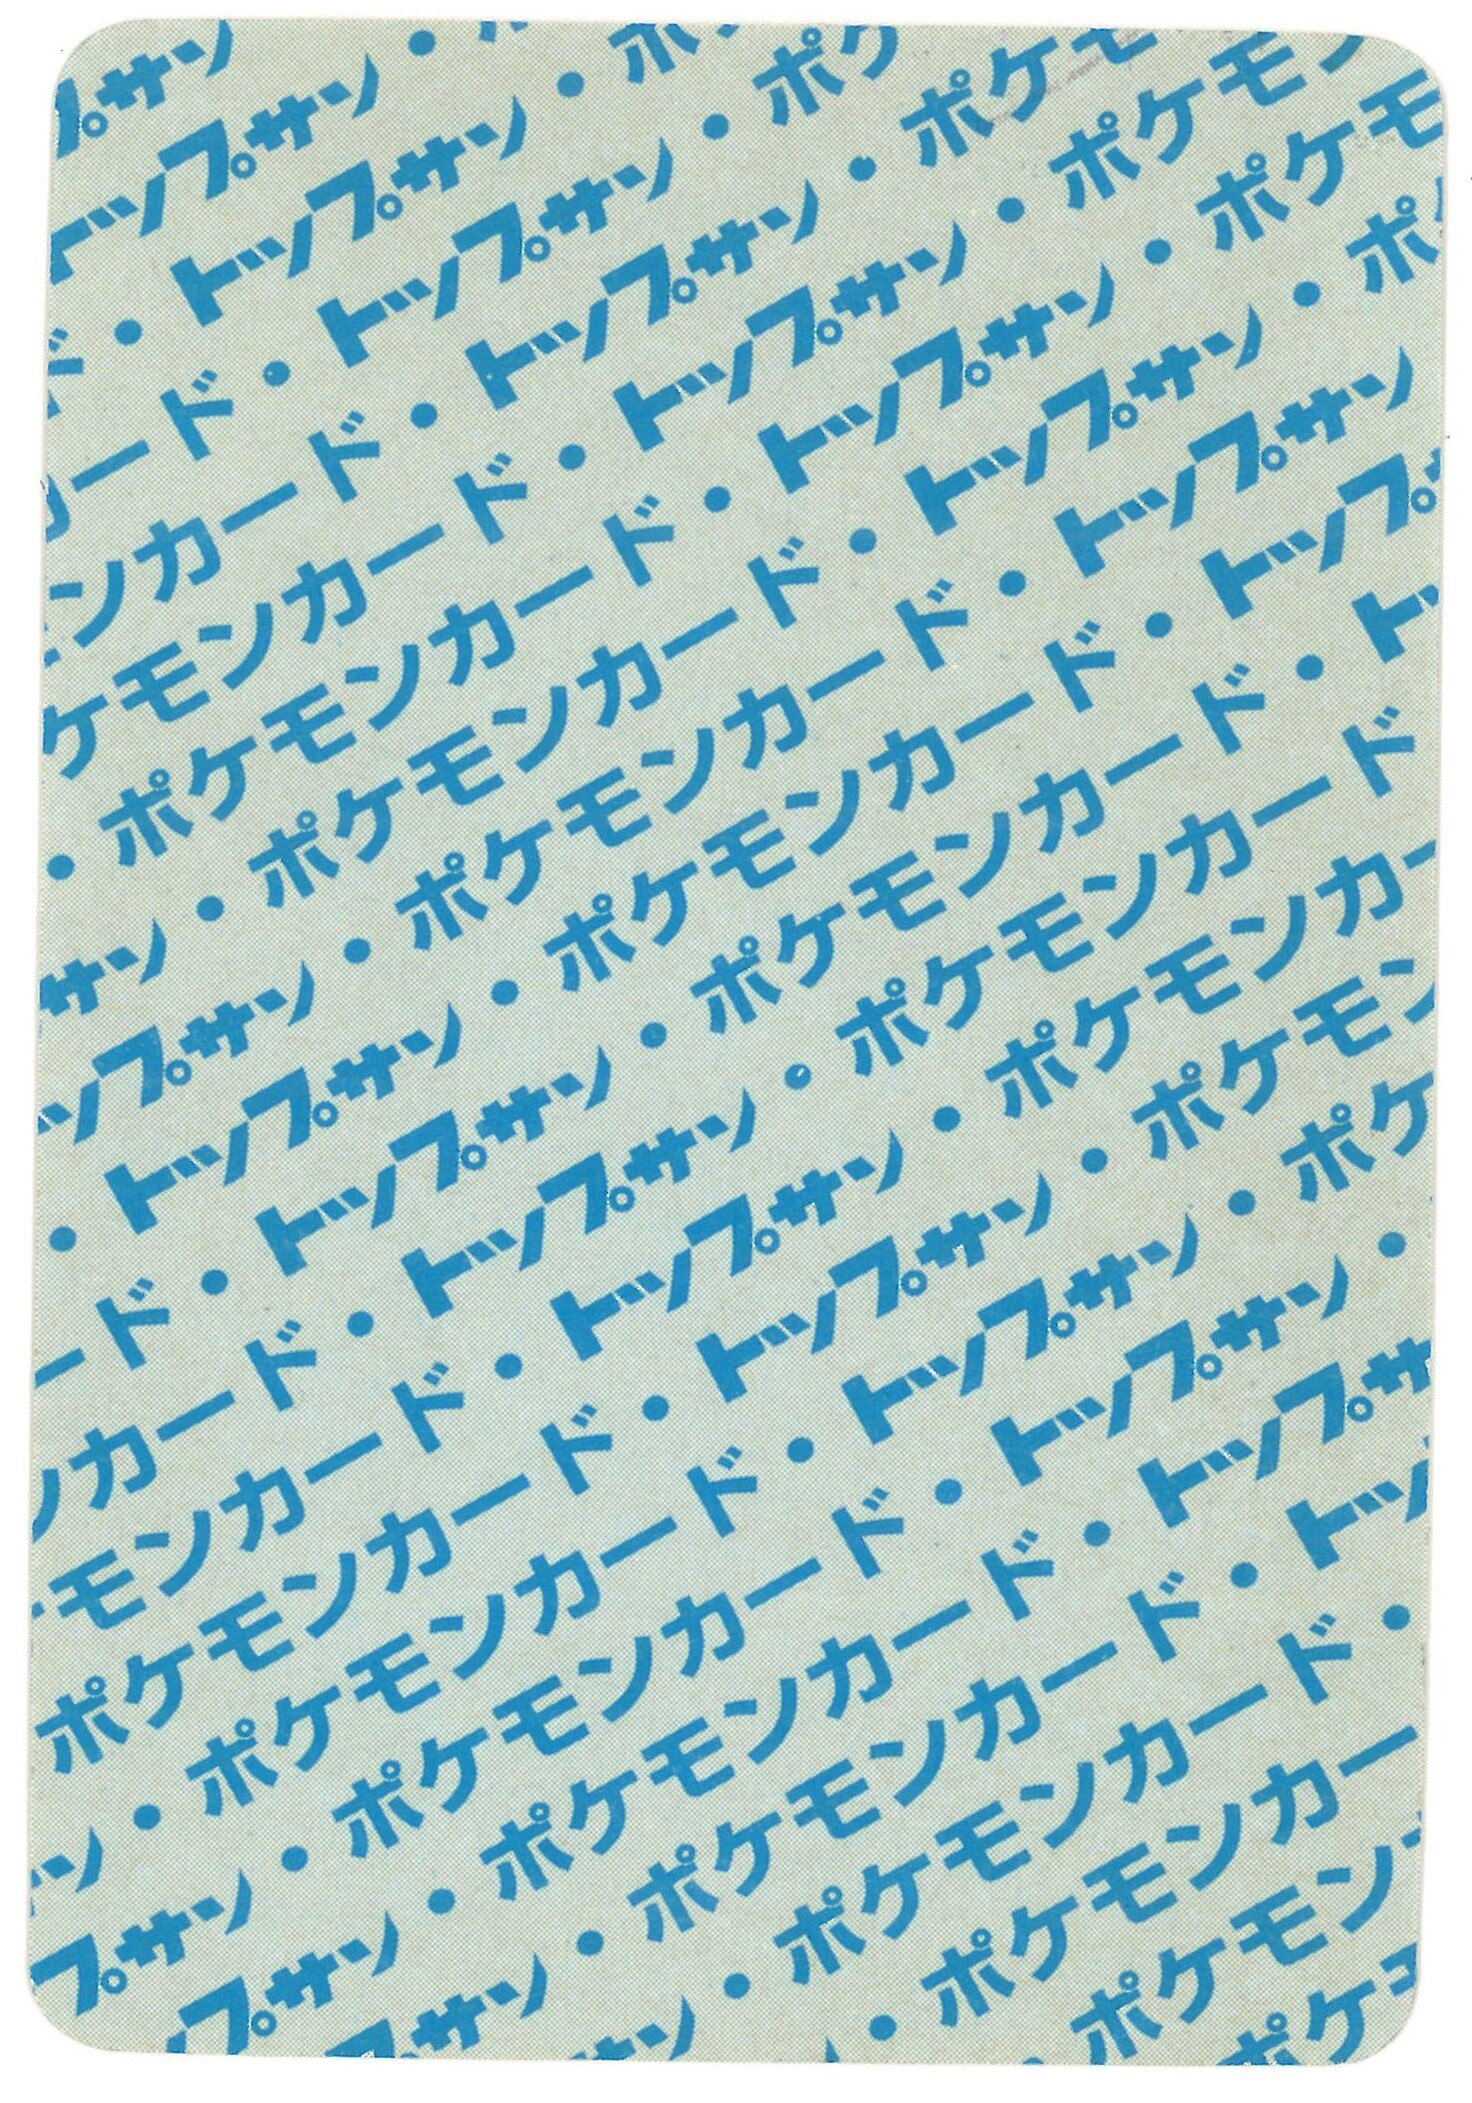 プサン
トップサン・
ド・トップサン・ポ
カード・トップサン・ポケ
ンカード・トップサン・ポケモ
ケモンカード・トップサン・ポケモン
・ポケモンカード・トップサン・ポケモ
サン・ポケモンカード・トップサン・ポ
ップサン・ポケモンカード・トップサン
・トップサン・ポケモンカード・トップ
ード・トップサン・ポケモンカード・ト
ンカード・トップサン・ポケモンカード
モンカード・トップサン・ポケモンカー
ポケモンカード・トップサン・ポケモン
ン・ポケモンカード・トップサン・ポケ
プサン・ポケモンカード・トップサン・
プサン・ポケモンカード・トップサ
サン・ポケモンカード・トッ
ン・ポケモンカード・
・ポケモンカー
ポケモン
ポケ